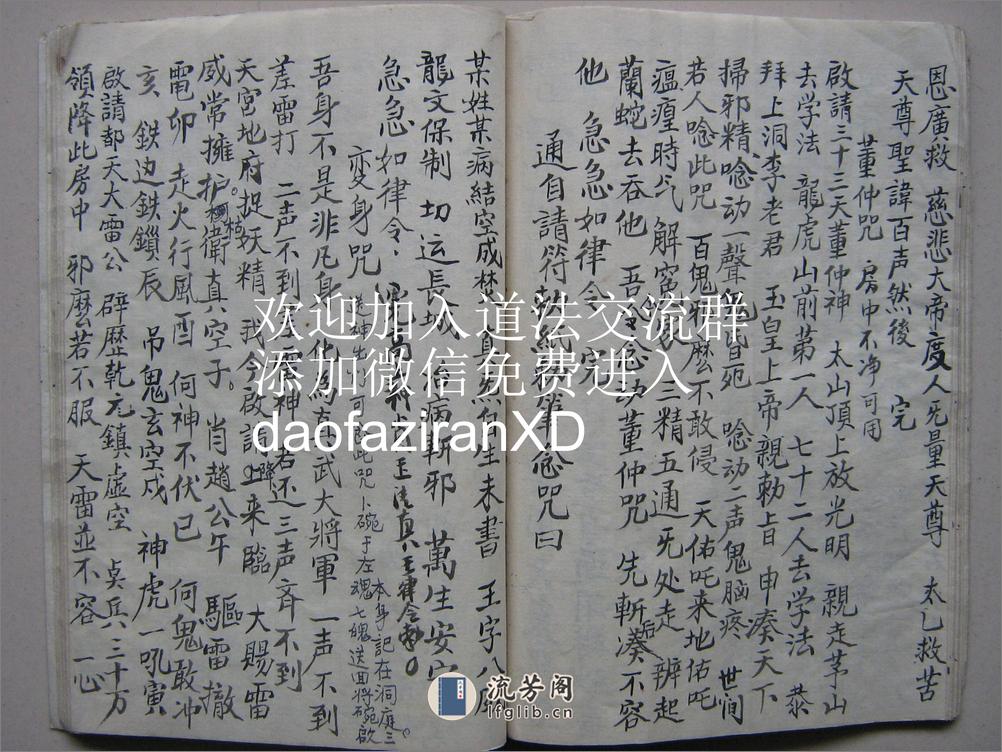 恩廣救 慈悲大帝度人无量天尊 太乙救苦
天尊聖諱百声然後 完
董仲咒 房中不净可用
啟請三十三天董仲神 太山頂上放光明 親走茅山
去学法 龍虎山前第一人 七十二人去学法 恭
拜上洞李老君 玉皇上帝親勅旨 申凑天下
掃邪精唸动一聲 唸动二声鬼脑疼 世间
若人唸此咒 百鬼 邪麽不敢侵 天佑吒来地佑吒
瘟瘟時气 解 三精五通无处走 辨起
蘭蛇去吞他 吾 念动董仲咒 先斬后凑不容
他 急急如律令 完
通自請符 念咒曰
某姓某病結空成梵 真 自生未書 王字八威
龍文保制 切运長 斬邪 萬生安
急急如律令 律令
变身咒 此咒 卜碗于左 本身記在洞庭三
魂七魄送回將碗啟
吾身不是非凡身 化為真武大將軍 一声不到
差雷打 二声不到 神 若还三声斉不到
天宫地府捉妖精 我今啟請上降来臨 大赐雷
威常擁护 衛真空子 肖趙公午 驅雷撤
電卯 走火行風酉 何神不伏巳 何鬼敢冲
亥 鉄边鉄鎖辰 吊鬼玄空戍 神虎一吼寅
啟請都天大雷公 辟歷乾元鎮虚空 兵三十万
領降此房中 邪麽若不服 天雷並不容 一心
欢迎加入道法交流群
添加微信免费进入
daofaziranXD
流芳阁
lfglib.cn